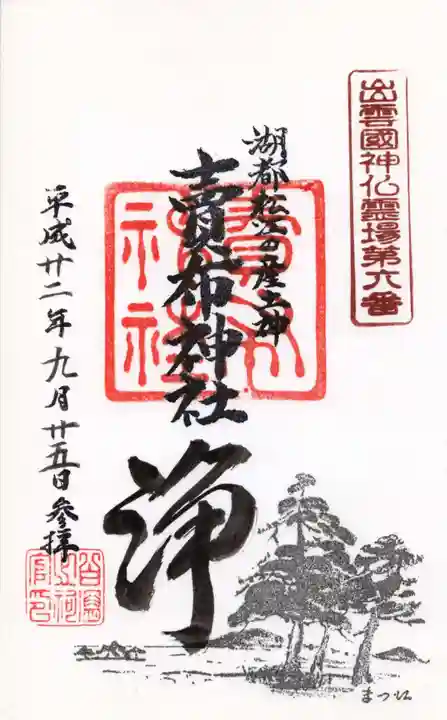 出雲國神仏霊場第六番
湖都松江の産土神
賣布神社
浄
平成廿二年九月廿五日参拝
まつえ